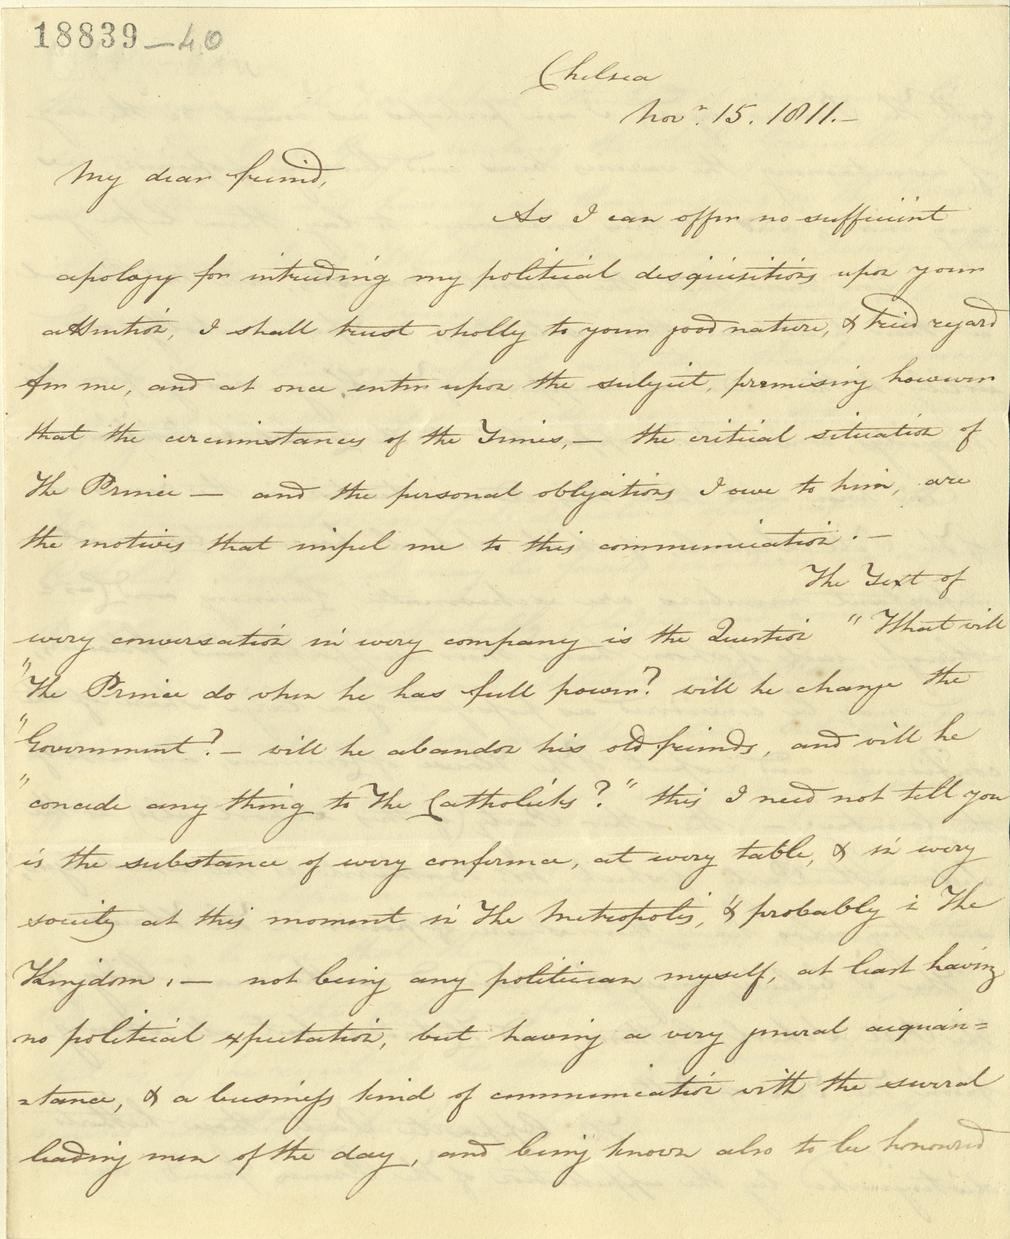 18839-40
Chelsea
Novr. 15. 1811.—
My dear friend,
As I can offer no sufficient
apology for intruding my political disquisitions upon your
attention, I shall trust wholly to your good nature, & tried regard
for me, and at once enter upon the subject, premising however
that the circumstances of the Times,— the critical situation of
The Prince — and the personal obligations I owe to him, are
the motives that impel me to this communication.—
The Text of
every conversation in every company is the Question "What will
"The Prince do when he has full power? will he change the
"Government?— will he abandon his old friends, and will he
"concede any thing to The Catholicks?" this I need not tell you
is the substance of every conference, at every table, & in every
society at this moment in The Metropolis, & probably in The
Kingdom;— not being any politician myself, at least having
no political expectation, but having a very general acquain=
=tance, & a business kind of communication with the several
leading men of the day, and being known also to be honoured